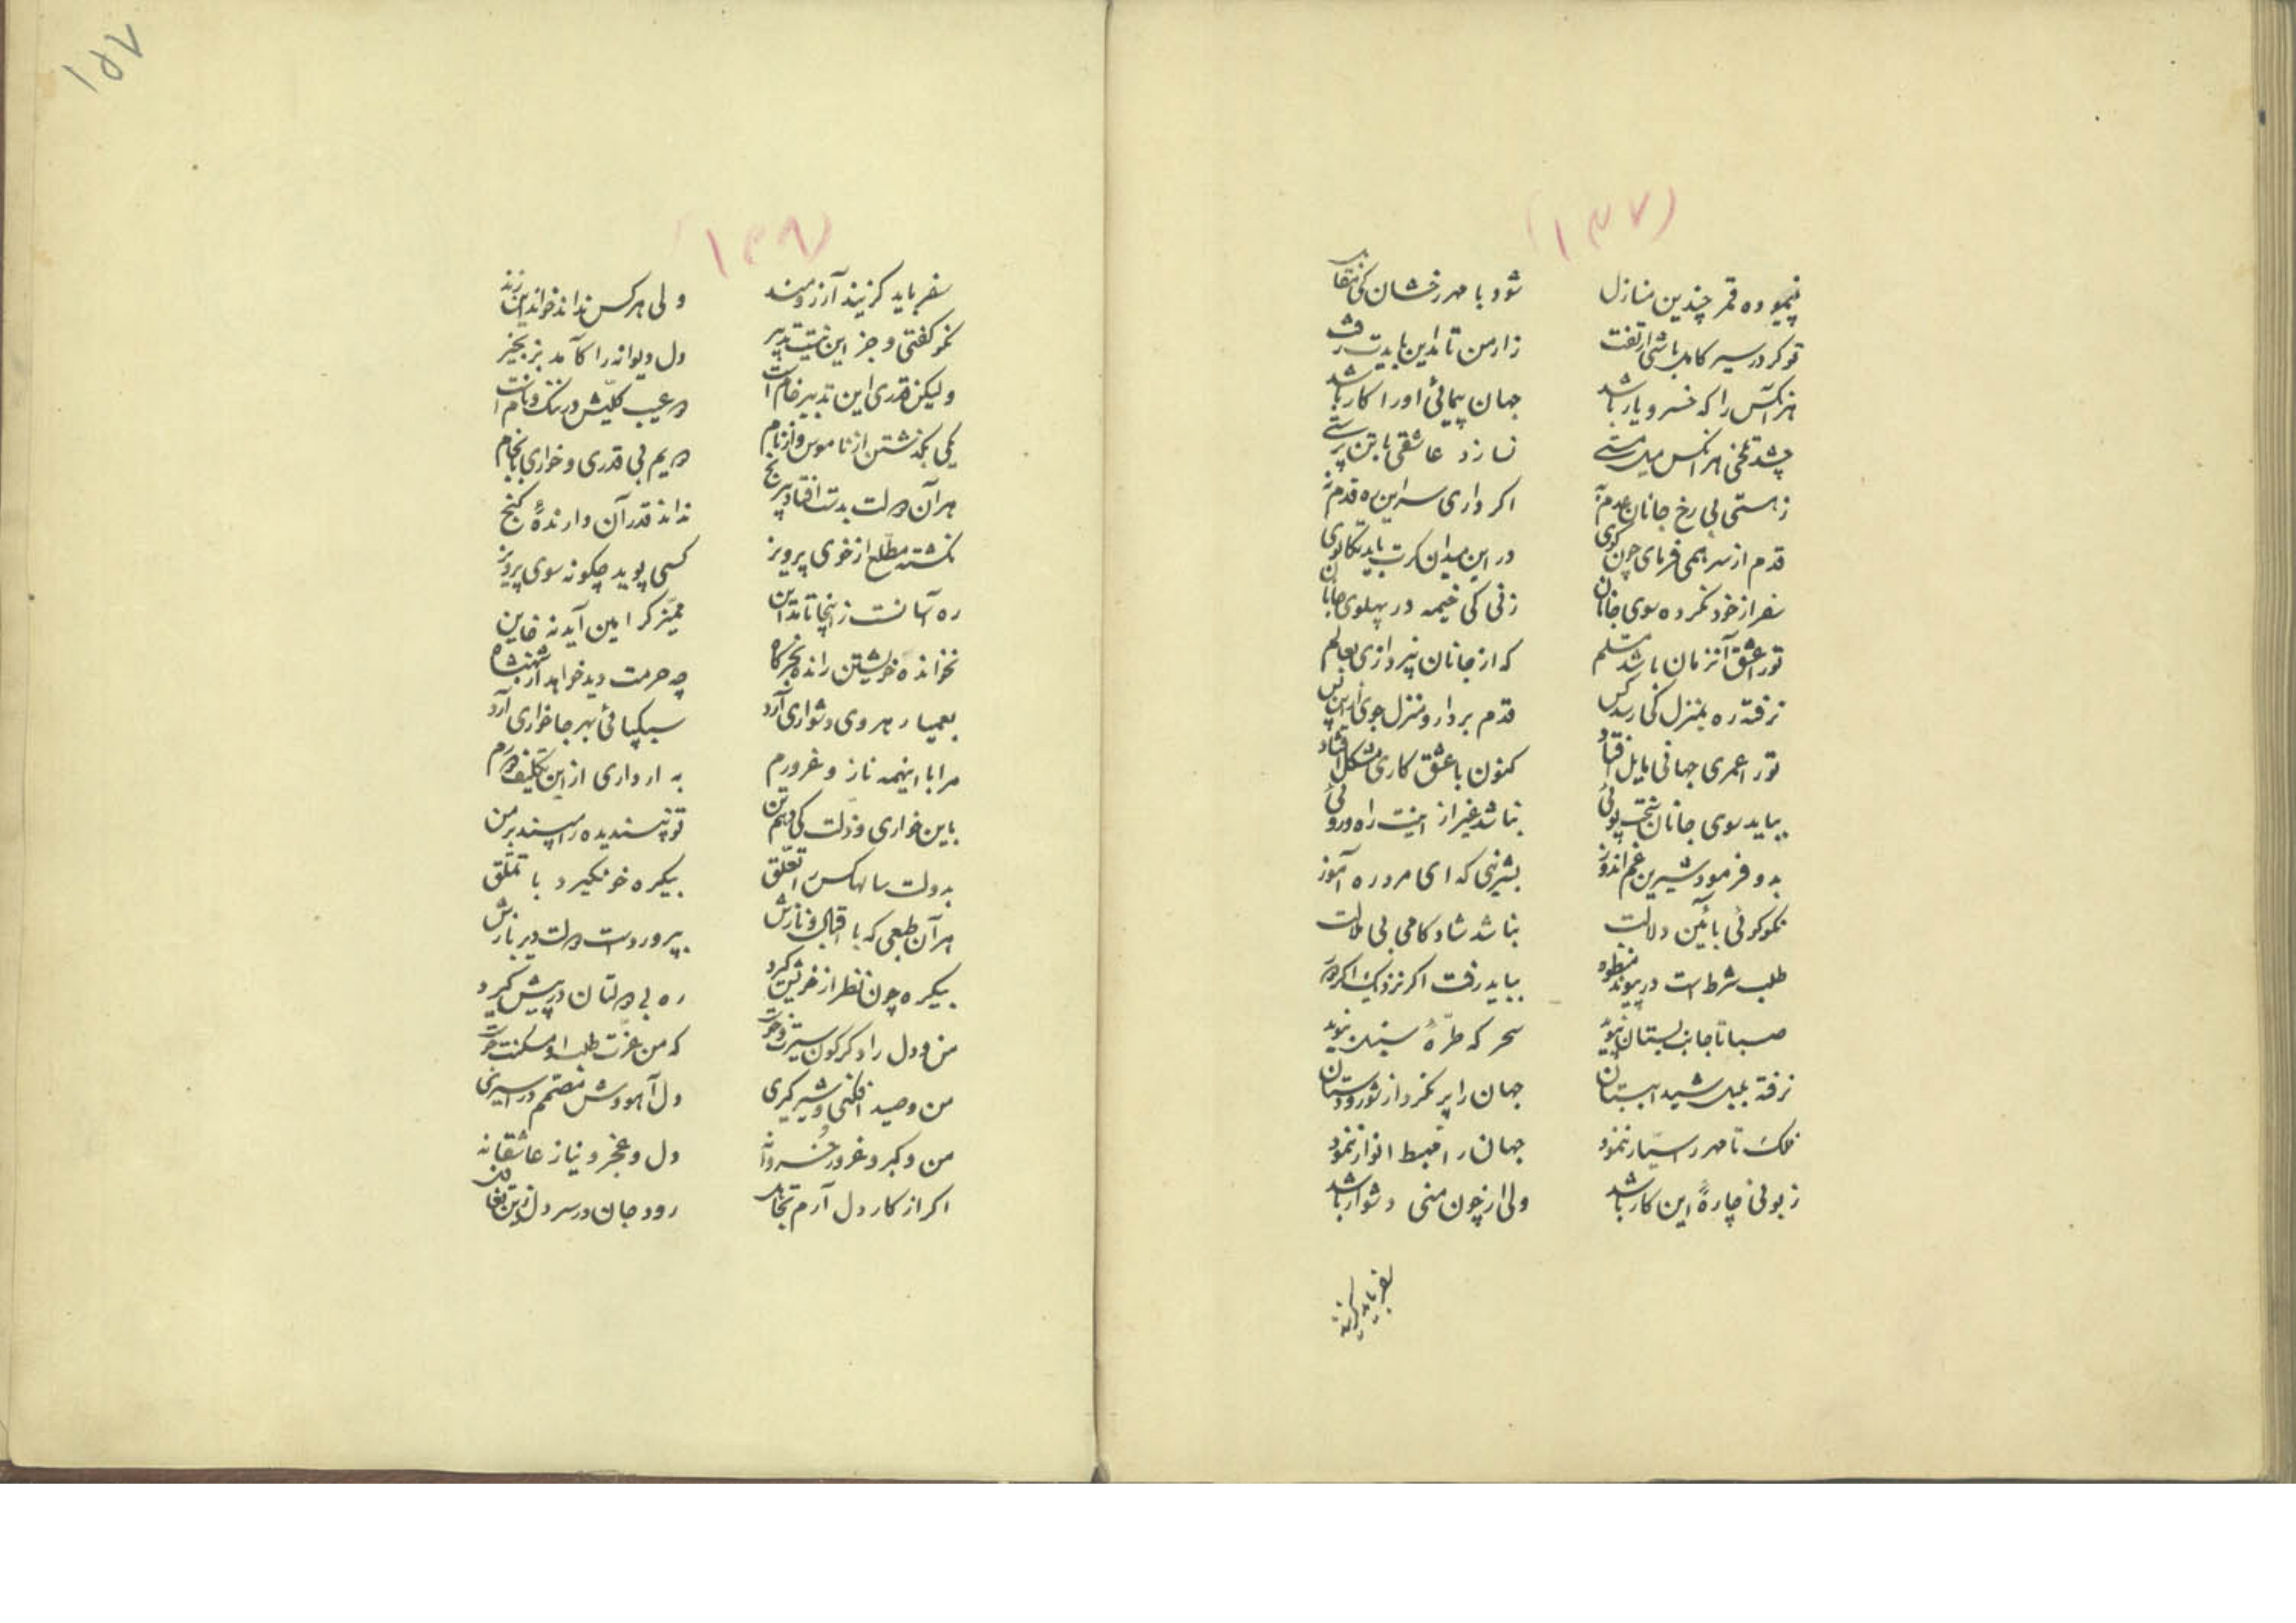 (۱۳۷)
نپیموده قمر چندین منازل شود با مهر رخشان کی مقابل
تو کر در سیر کاهل باشی از تفت ز ارمن تا مداین بایدت رفت
هر آنکس را که خسرو یار باشد جهان پیمائی او را کار باشد
چشد تلخی هر انکس میل مستی نسازد عاشقی با تن پرستی
ز هستی بی رخ جانان عدم به اکر داری سر این ره قدم نه
قدم از سر همی فرمای چون کوی در این میدان کرت باید تکاپوی
سفر از خود نکرده سوی جانان زنی کی خیمه در پهلوی جانان
تو را عشق آنزمان باشد مسلم که از جانان نپردازی بعالم
نرفته ره بمنزل کی رسد کس قدم بردار و منزل جوی ازین پس
تو را عمری جهانی مایل افتاد کنون با عشق کاری مشکل افتاد
بباید سوی جانان سخت پوئی نباشد غیر از اینت راه و روئی
بدو فرمود شیرین غم اندوز بشیرینی که ای مرد ره آموز
نکو کوئی بآئین دلالت نباشد شادکامی بی ملالت
طلب شرط است در پیوند منظور بباید رفت اکر نزدیک اکر دور
صبا تا جانب بستان نپوید سحر که طرهٔ سنبل نبوید
نرفته بلبل شیدا ببستان جهان را پر نکرد از شور و دستان
فلک تا مهر را سیار ننمود جهان را مهبط انوار ننمود
زبونی چارهٔ این کار باشد ولی از چون منی دشوار باشد
سفر باید کزیند
۱۵۷
(۱۳۸)
سفر باید کزیند آرزومند ولی هر کس نداند خواند این زند
نکو کفتی و جز این نیست تدبیر دل دیوانه را کآمد بزنجیر
ولیکن قدری این تدبیر خام است در عیب کلیش در ننک و نام است
یکی بکذشتن از ناموس و از نام دویم بی قدری و خواری بانجام
هر آن دولت بدست افتاد بی رنج نداند قدر آن دارندهٔ کنج
نکشته مطلع از خوی پرویز کسی پوید چکونه سوی پرویز
ره آسانست ز اینجا تا مداین ممیز کر امین آید نه خاین
نخوانده خویشتن رانده بخرکاه چه حرمت دید خواهد از شهنشاه
بعمیا رهروی دشواری آرد سبکپائی بهر جا خواری آرد
مرا با اینهمه ناز و غرورم به ار داری از این تکلیف دورم
باین خواری و ذلت کی دهم تن تو نپسندیده را مپسند بر من
بدولت سالها کس را تعلق بیکره خو نکیرد با تملق
هر آن طبعی که با اقبال و نازش بپروردست دولت دیر بازش
بیکره چون نظر از خویش کیرد ره بی دولتان در پیش کیرد
من و دل را دکرکون سیرت و خوست که من عزت طلب او مسکنت جوست
من و صید افکنی و شیر کیری دل آهووش مصمم در اسیری
من و کبر و غرور خسروانه دل و عجز و نیاز عاشقانه
اکر از کار دل آرم تجاهل رود جان در سر دل زین تغافل